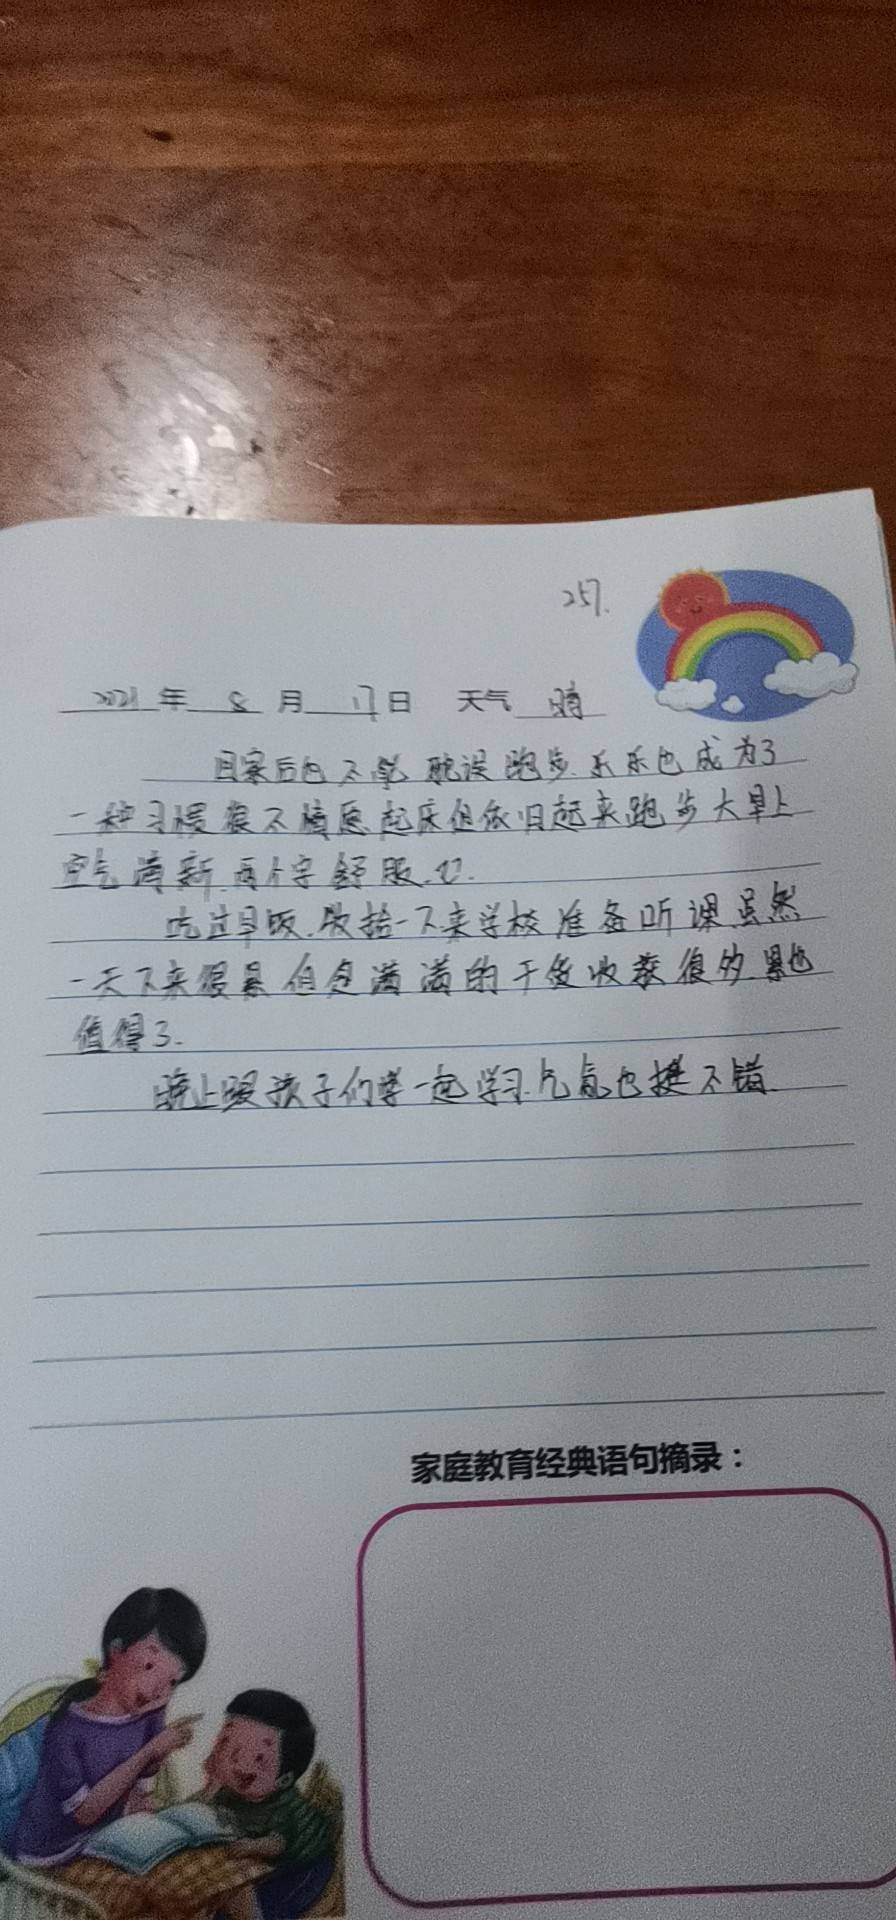 257.
2021年 8月 17日 天气 晴
回家后也不能耽误跑步.乐乐也成为了
一种习惯很不情愿起床但依旧起来跑步大早上
空气清新.两个字舒服.
吃过早饭.收拾一下来学校准备听课虽然
一天下来很累但是满满的干货收获很多.累也
值得了.
晚上跟孩子们一起学习.气氛也挺不错.
家庭教育经典语句摘录：